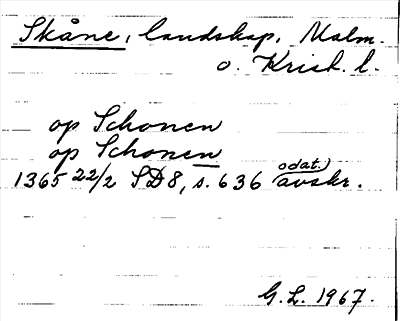 Skåne, landskap, Malm.
o. Krist. l.
op Schonen
op Schonen
1365 22/2 SD8, s. 636 odat. avskr.
G.L. 1967.